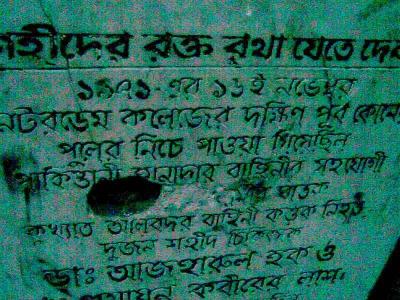 শহীদের রক্ত বৃথা যেতে দেব
১৯৭১-এর ১৬ই নভেম্বর
নটরডেম কলেজের দক্ষিণ পূর্ব কোনে
পুলের নিচে পাওয়া গিয়েছিল
পাকিস্তানী হানাদার বাহিনীর সহযোগী
ঘাতক
কুখ্যাত আলবদর বাহিনী কতৃক নিহত
দুজন শহীদ চিকিৎসক
ডাঃ আজহারুল হক ও
হুমায়ুন কবীরের লাশ।